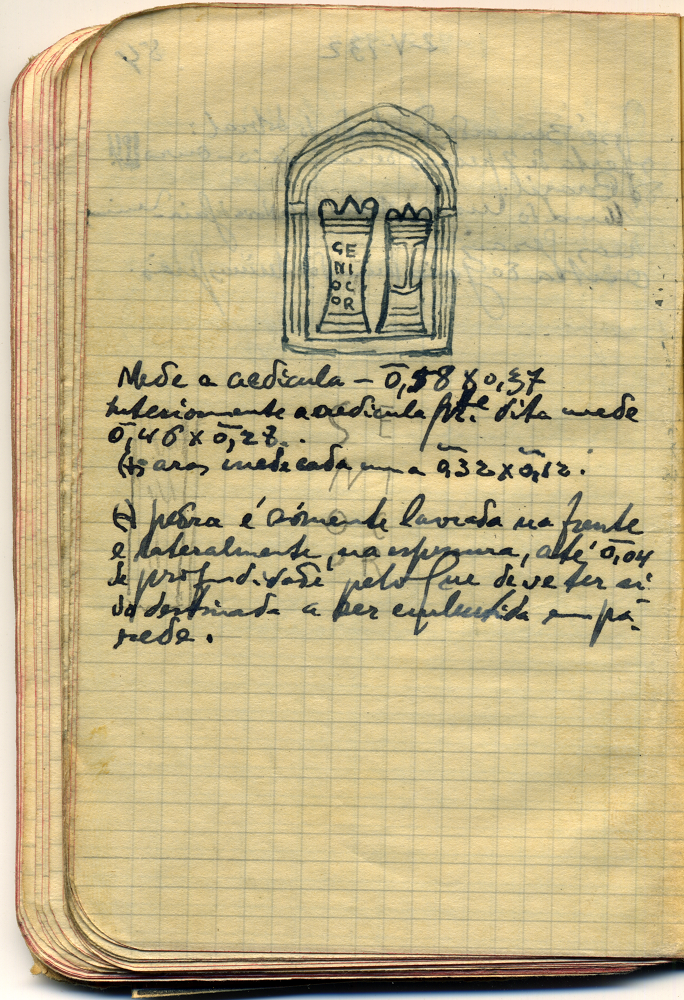 GE
NI
OC
OR
Mede a aedicula – 0,58 x 0,37
Interiormente a aedicula ppte. dita mede
0,46 x 0,27.
As aras mede cada uma 0,32 x 0,12.
A pedra é sómente lavrada na frente
e lateralmente, na espessura, até 0,04
de profundidade pelo que deve ter si
do destinada a ser embutida em pa-
rede.